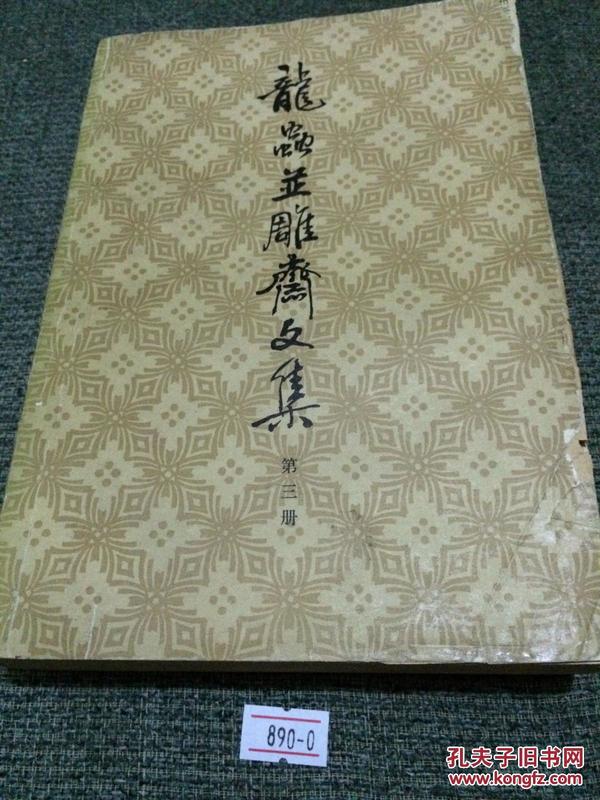 龍蟲並雕齋文集
第三册
890-0
孔夫子旧书网
www.kongfz.com